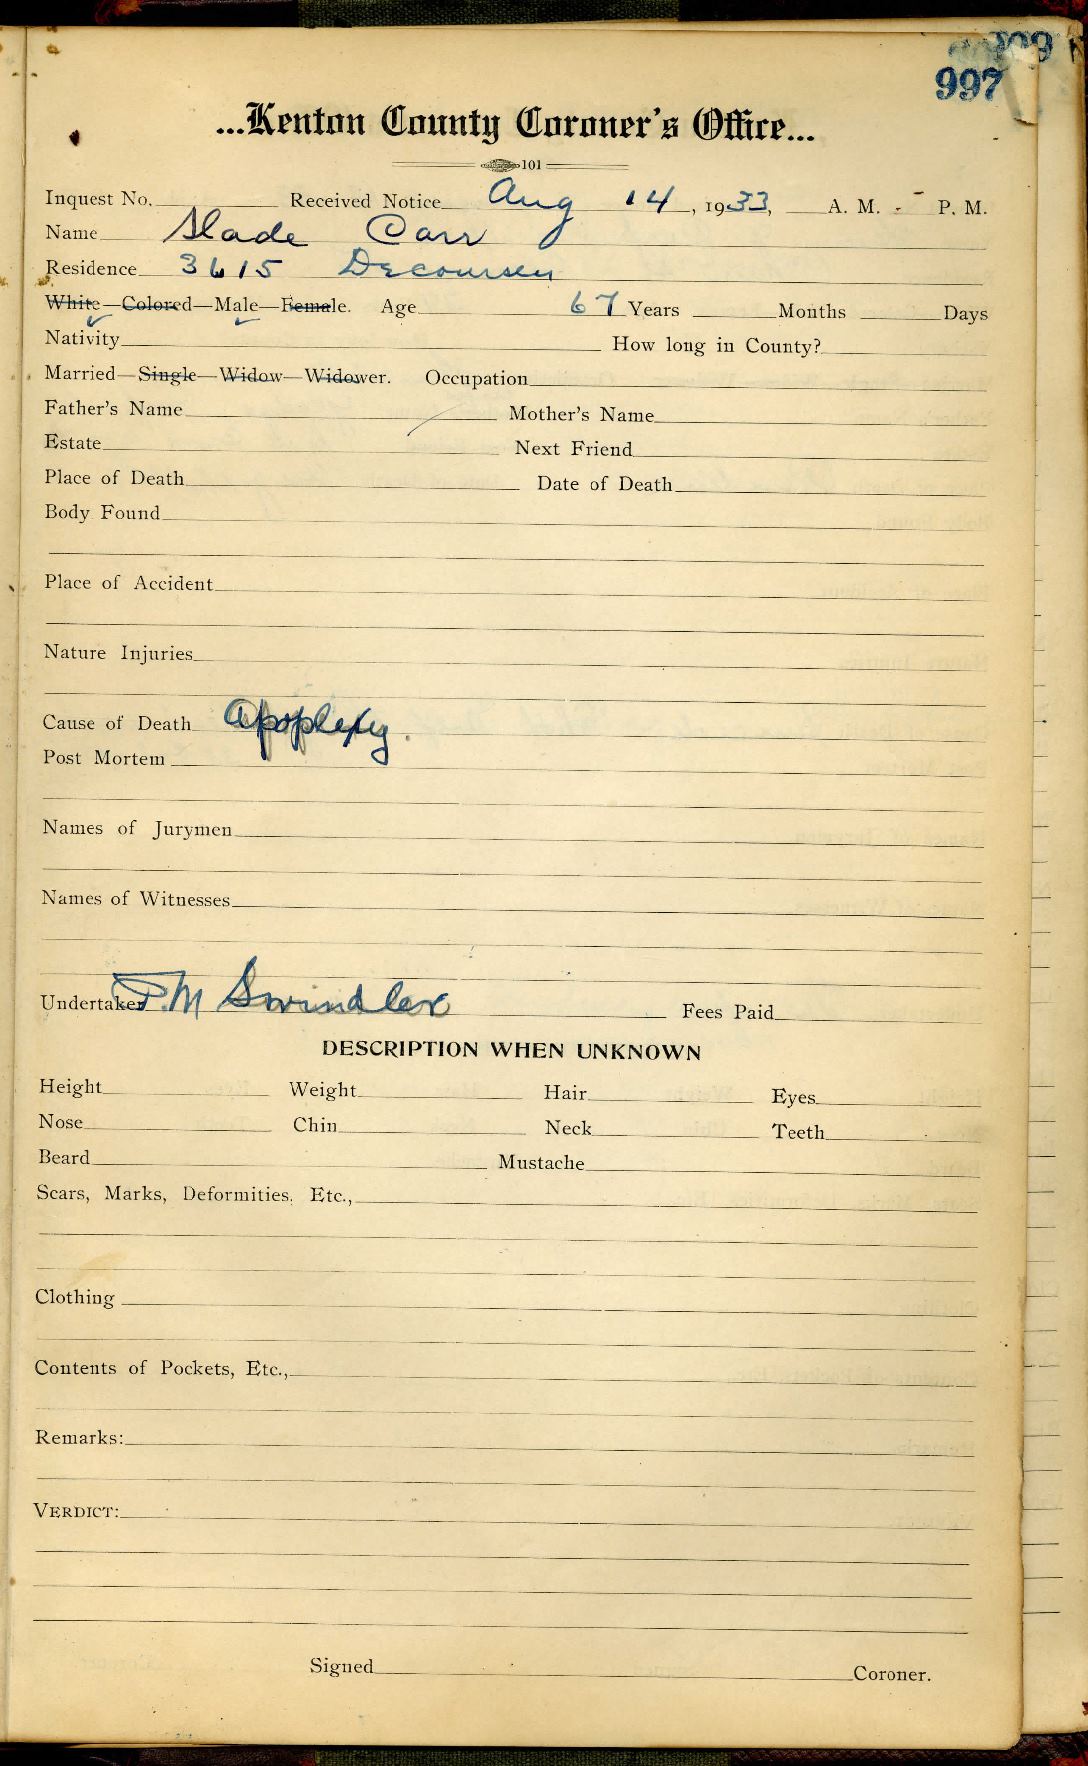 997
...Kenton County Coroner's Office...
101
Inquest No. Received Notice Aug 14, 1933, A. M. - P. M.
Name Slade Carr
Residence 3615 Decoursey
White—Colored—Male—Female. Age 67 Years Months Days
Nativity How long in County?
Married—Single—Widow—Widower. Occupation
Father's Name Mother's Name
Estate Next Friend
Place of Death Date of Death
Body Found
Place of Accident
Nature Injuries
Cause of Death Apoplexy.
Post Mortem
Names of Jurymen
Names of Witnesses
Undertaker F. M Swindler Fees Paid
DESCRIPTION WHEN UNKNOWN
Height Weight Hair Eyes
Nose Chin Neck Teeth
Beard Mustache
Scars, Marks, Deformities, Etc.,
Clothing
Contents of Pockets, Etc.,
Remarks:
VERDICT:
Signed Coroner.